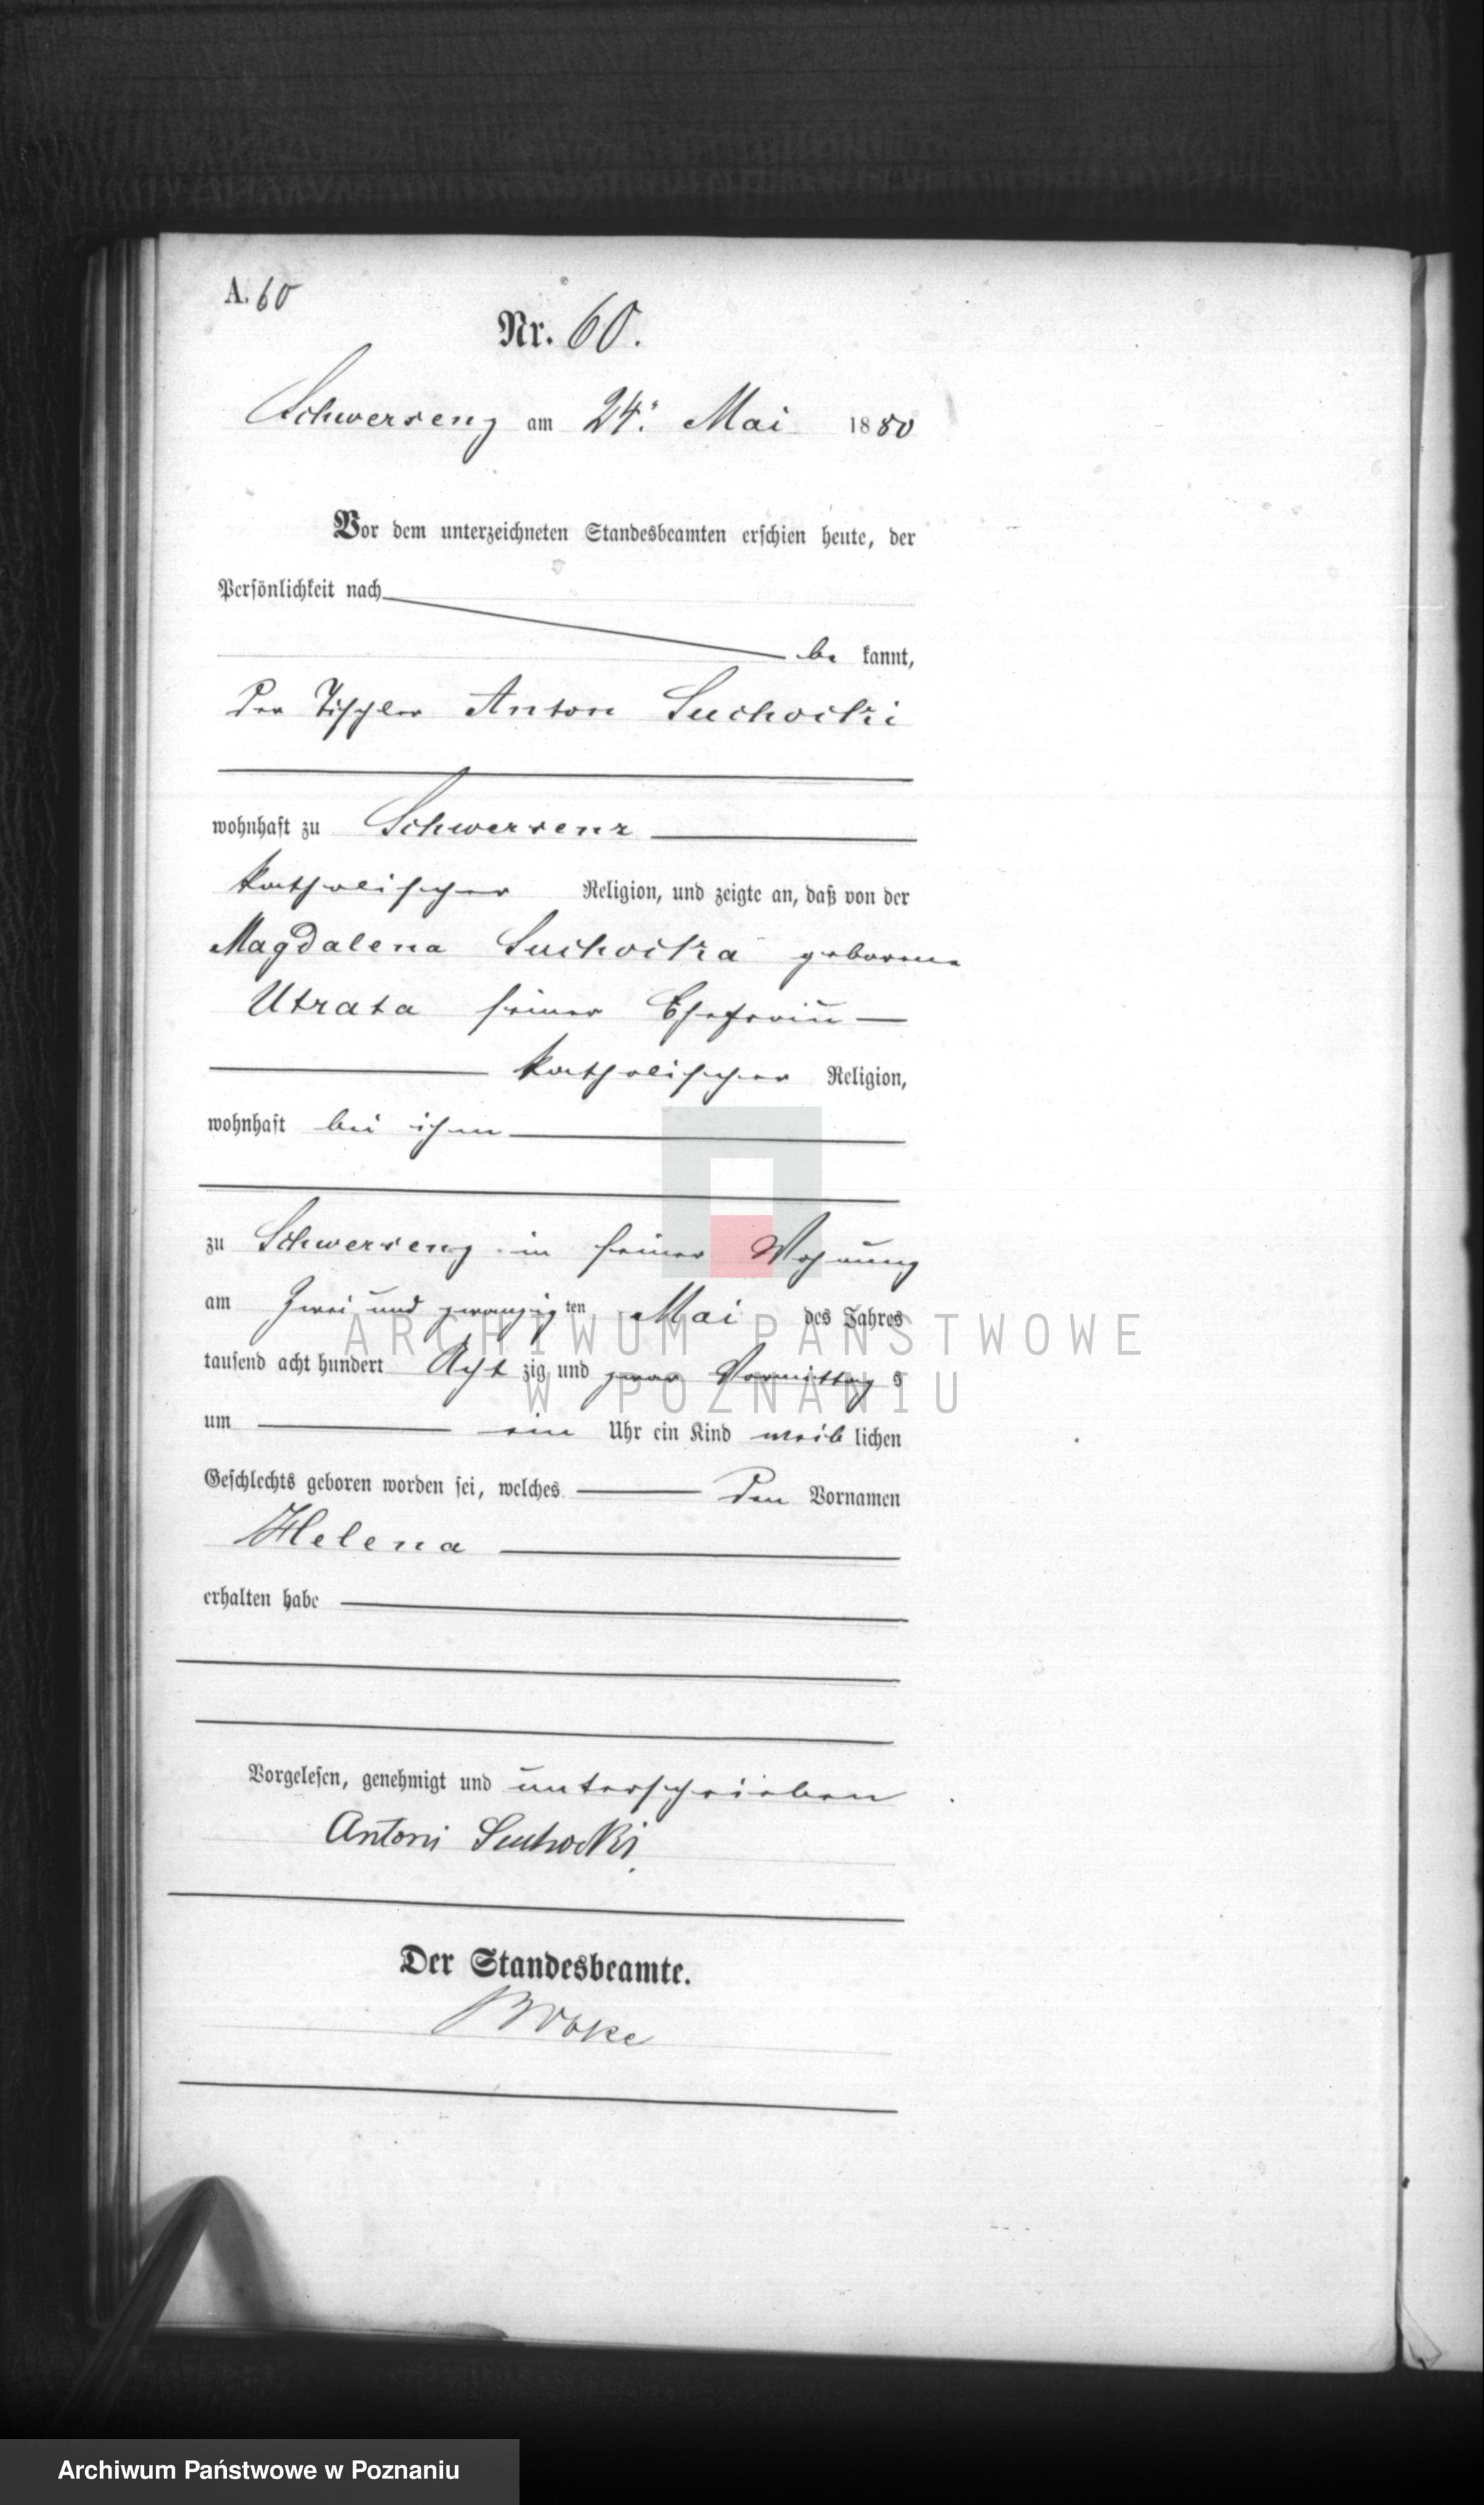 A. 60
Nr. 60.
Schwersenz am 24. Mai 1880
Vor dem unterzeichneten Standesbeamten erschien heute, der
Persönlichkeit nach
be kannt,
der Tischler Anton Suchocki
wohnhaft zu Schwersenz
katholischer Religion, und zeigte an, daß von der
Magdalena Suchocka geborene
Utrata seiner Ehefrau
katholischer Religion,
wohnhaft bei ihm
zu Schwersenz in seiner Wohnung
am zwei und zwanzig ten Mai des Jahres
tausend acht hundert Acht zig und zwar Vormittag s
um ein Uhr ein Kind weib lichen
Geschlechts geboren worden sei, welches den Vornamen
Helena
erhalten habe
Vorgelesen, genehmigt und unterschrieben
Antoni Suchocki
Der Standesbeamte.
ARCHIWUM PAŃSTWOWE
W POZNANIU
Archiwum Państwowe w Poznaniu